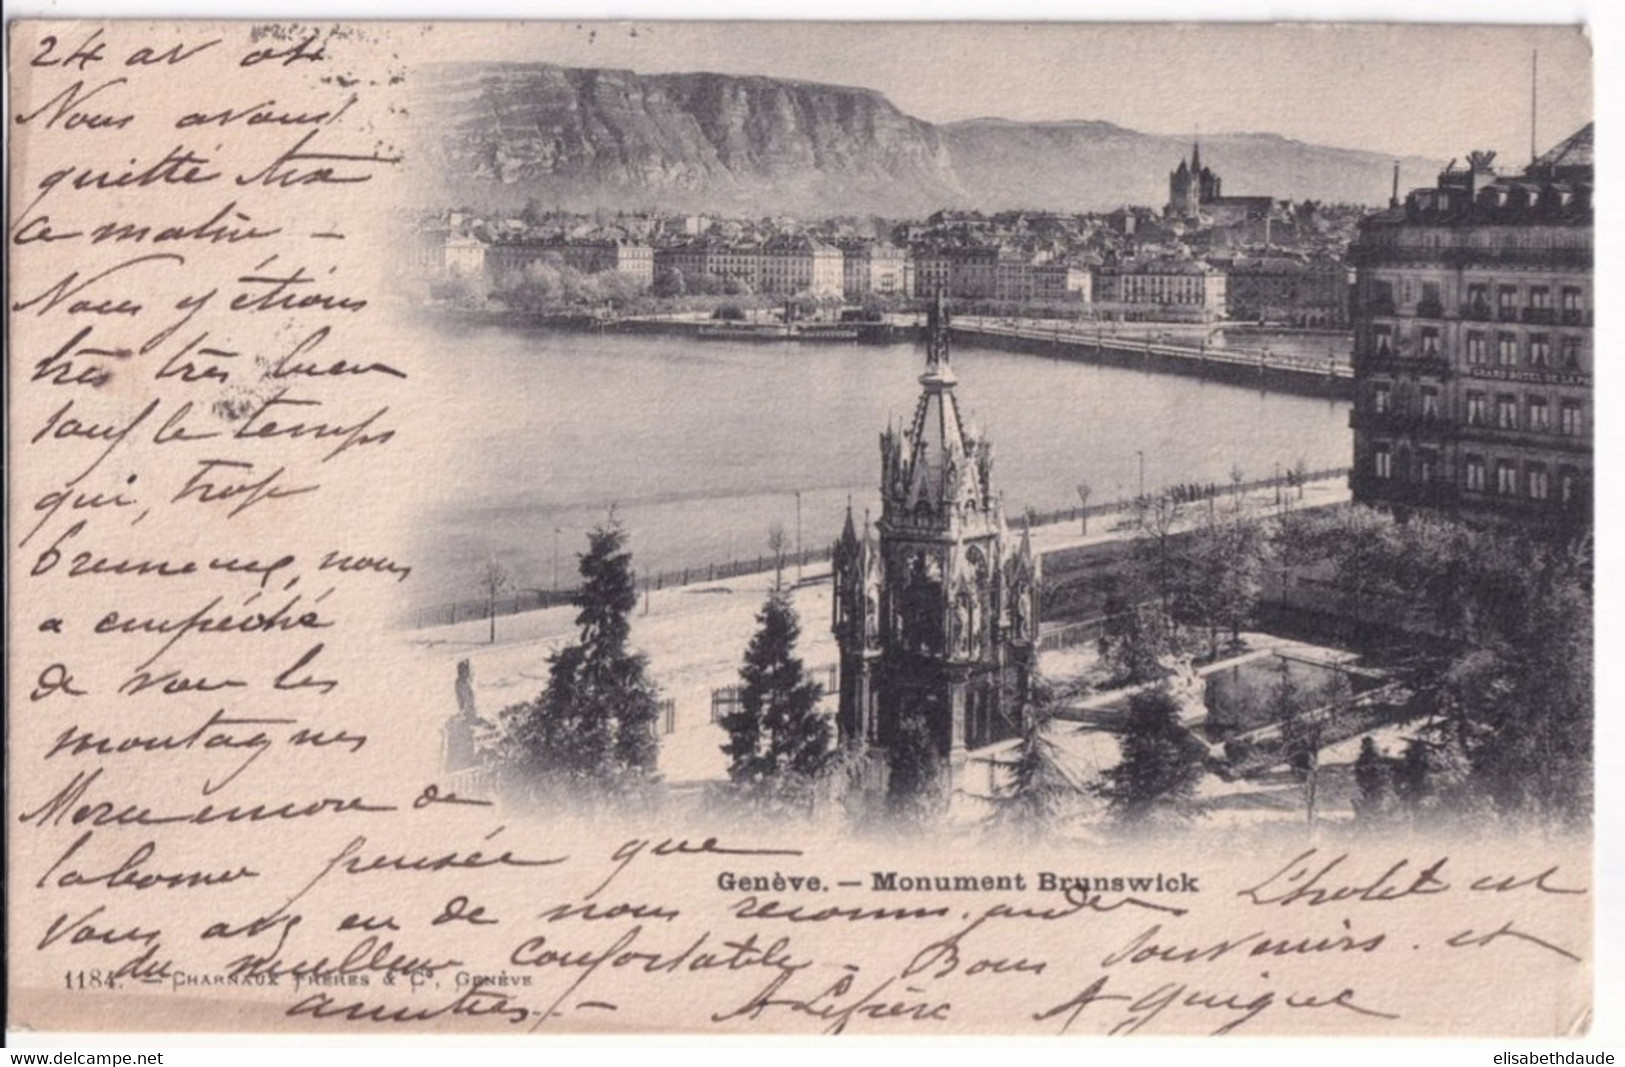 24 av 04
Nous avons
quitté Aix
ce matin –
Nous y étions
très très bien
sauf le temps
qui, trop
brumeux, nous
a empêché
de voir les
montagnes
Merci encore de
la bonne pensée que
vous avez eu de nous recommander L'hotel est
du meilleur confortable – Bons souvenirs et
amitiés –
GRAND HOTEL DE LA PA
Genève. – Monument Brunswick
1184. – CHARNAUX FRÈRES & Cº, GENÈVE
elisabethdaude